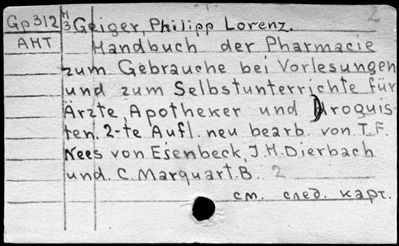 2
Gp312 H3 Geiger, Philipp Lorenz.
АНТ Handbuch der Pharmacie
zum Gebrauche bei Vorlesungen
und zum Selbstunterrichte für
Ärzte, Apotheker und Droguis-
ten. 2-te Aufl. neu bearb. von T.F.
Nees von Esenbeck, J.H. Dierbach
und C. Marquart. B. 2
см. след. карт.